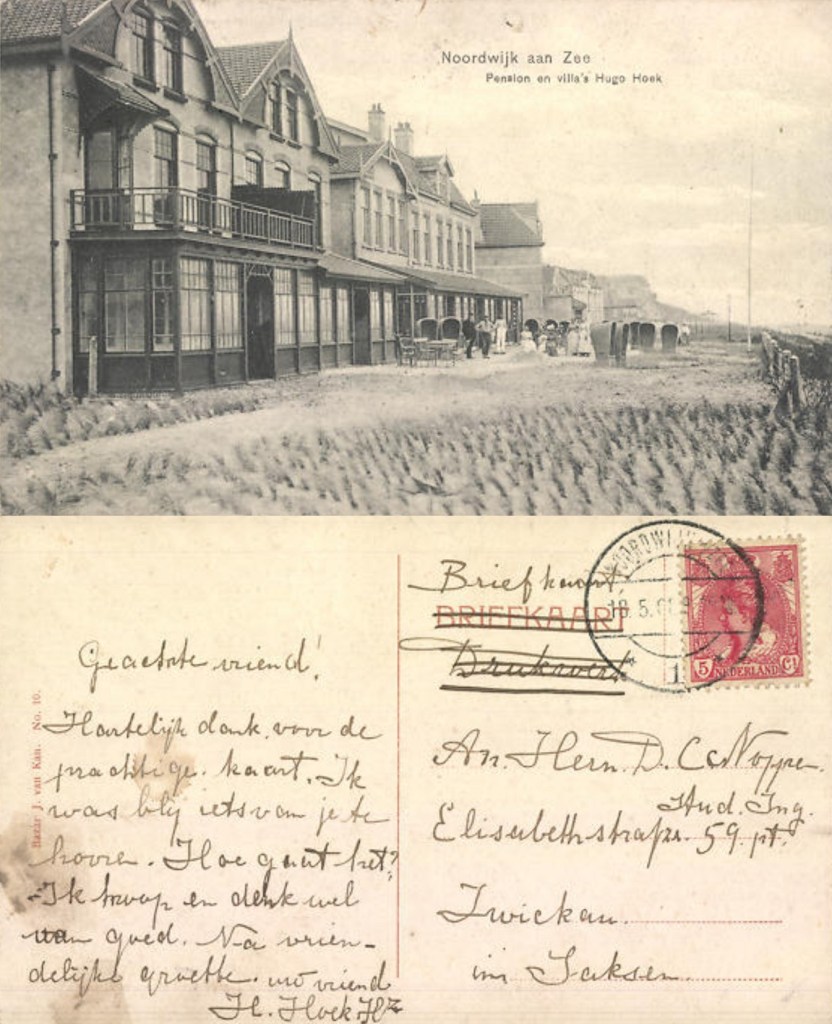 Noordwijk aan Zee
Pension en villa's Hugo Hoek
Briefkaart
BRIEFKAART
Drukwerk
NOORDWIJK
18.5.
1
5 NEDERLAND Ct
Geachte vriend!
Hartelijk dank voor de
prachtige kaart. Ik
was blij iets van je te
hooren. Hoe gaat het?
Ik hoop en denk wel
van goed. Na vrien-
delijke groette. uw vriend
H. Hoek Hz
An. Hern. D. C. Noppen.
Stud. Ing.
Elisabethstrasze. 59 pt.
Zwickau.
im Saksen.
Bazar J. van Kan. No. 10.